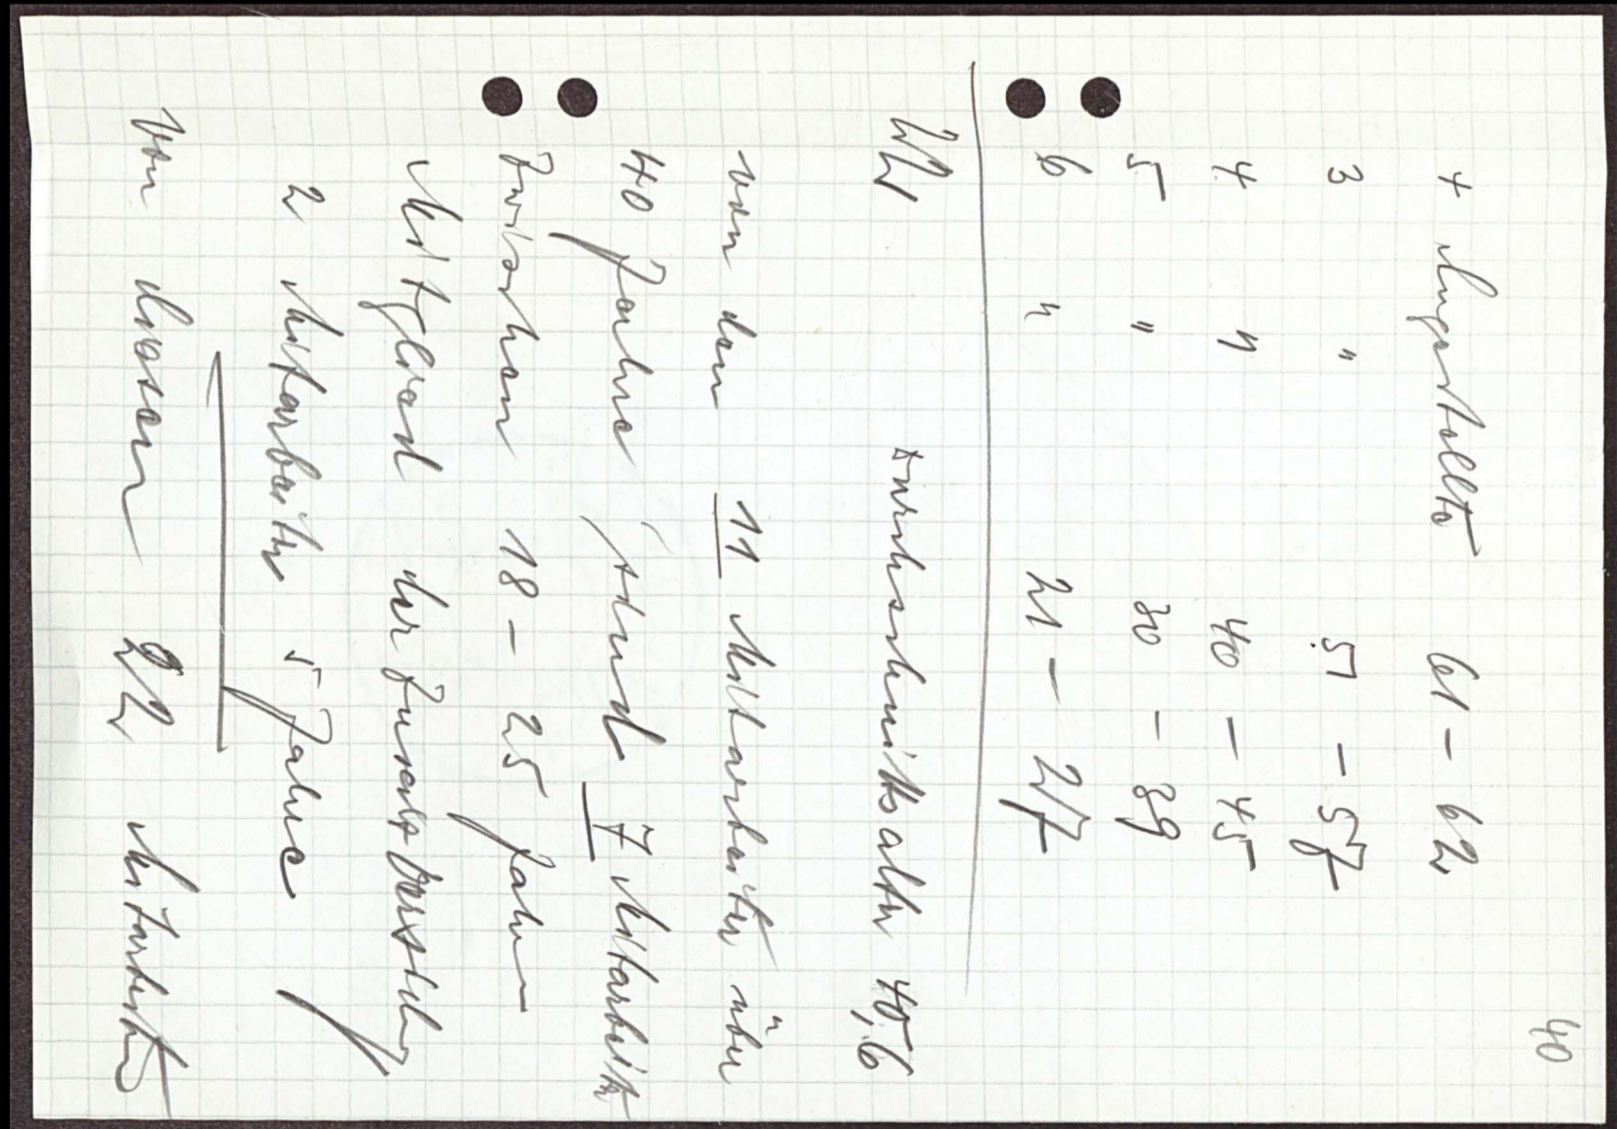 40
4 Angestellte 61 - 62
3 " 51 - 57
4 " 40 - 45
5 " 30 - 39
6 " 21 - 27
22 Durchschnittsalter 40,6
von den 11 Mitarbeiter über
40 Jahre sind 7 Mitarbeiter
zwischen 18 - 25 Jahre
Mitglied der Zusatzversicher
2 Mitarbeiter 5 Jahre
von diesen 22 Mitarbeiter